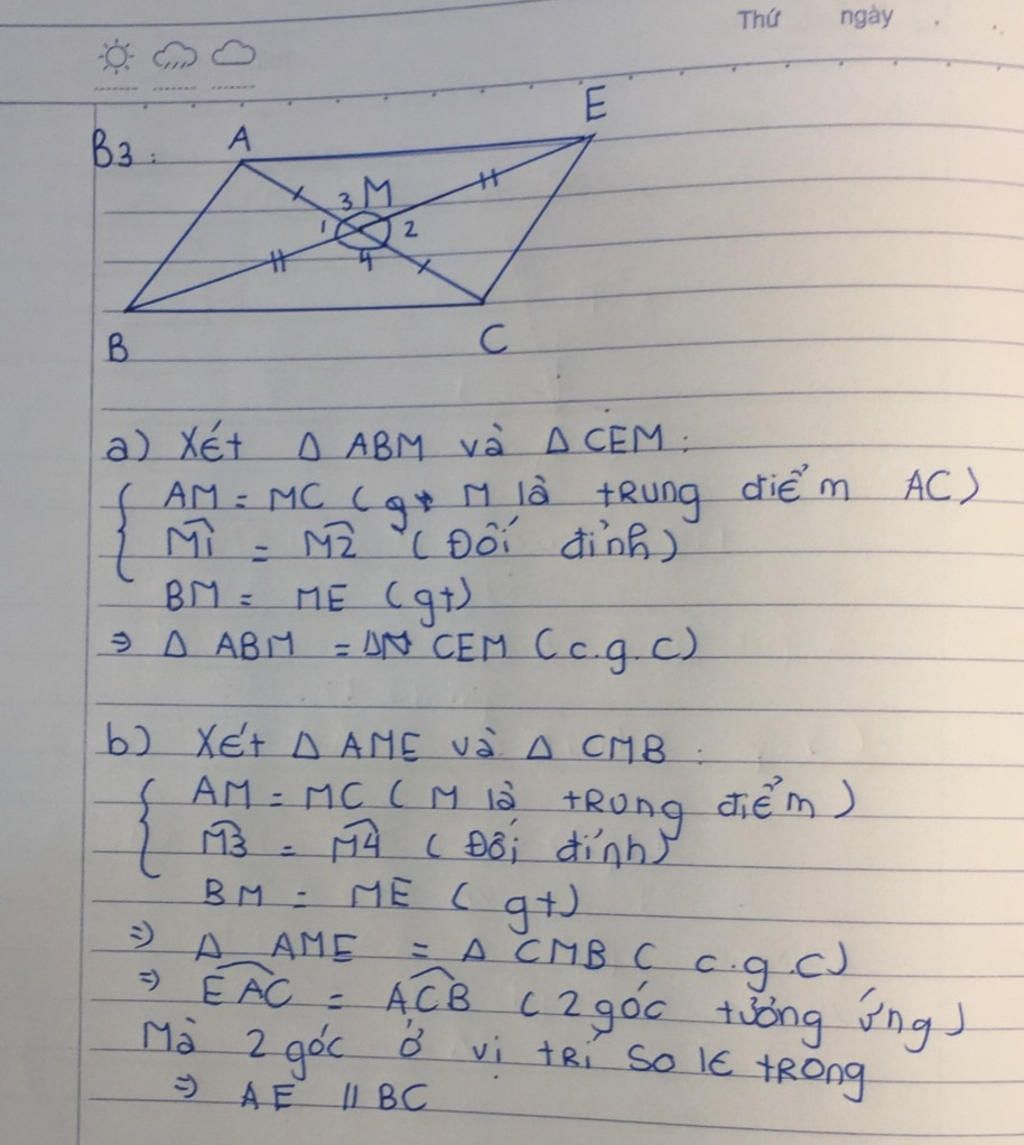 Thứ ngày
B3:
A
E
3 M
1 2
4
B
C
a) Xét Δ ABM và Δ CEM:
AM = MC ( gt M là trung điểm AC)
M1 = M2 ( Đối đỉnh)
BM = ME (gt)
⇒ Δ ABM = Δ CEM (c.g.c)
b) Xét Δ AME và Δ CMB :
AM = MC ( M là trung điểm )
M3 = M4 ( Đối đính)
BM = ME ( gt)
⇒ Δ AME = Δ CMB ( c.g.c)
⇒ EAC = ACB ( 2 góc tưởng ứng)
Mà 2 góc ở vị trí so le trong
⇒ AE // BC